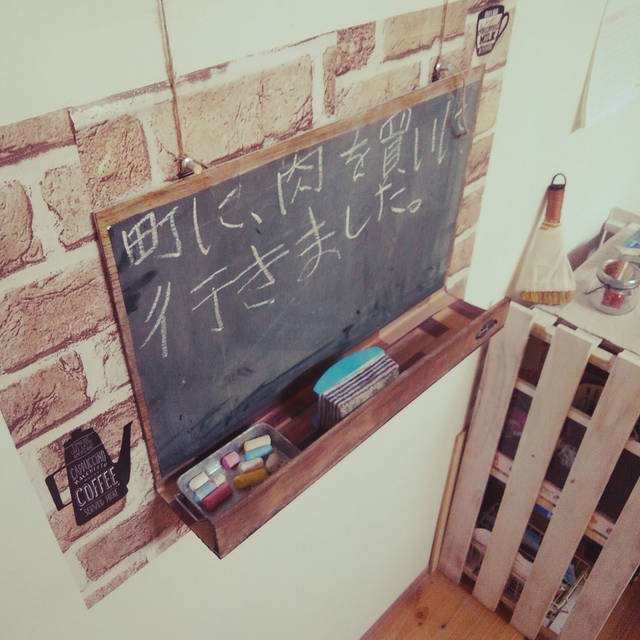 町に、肉を買い
行きました。
COFFEE
SERVED HERE
CAPPUCCINO
MILK